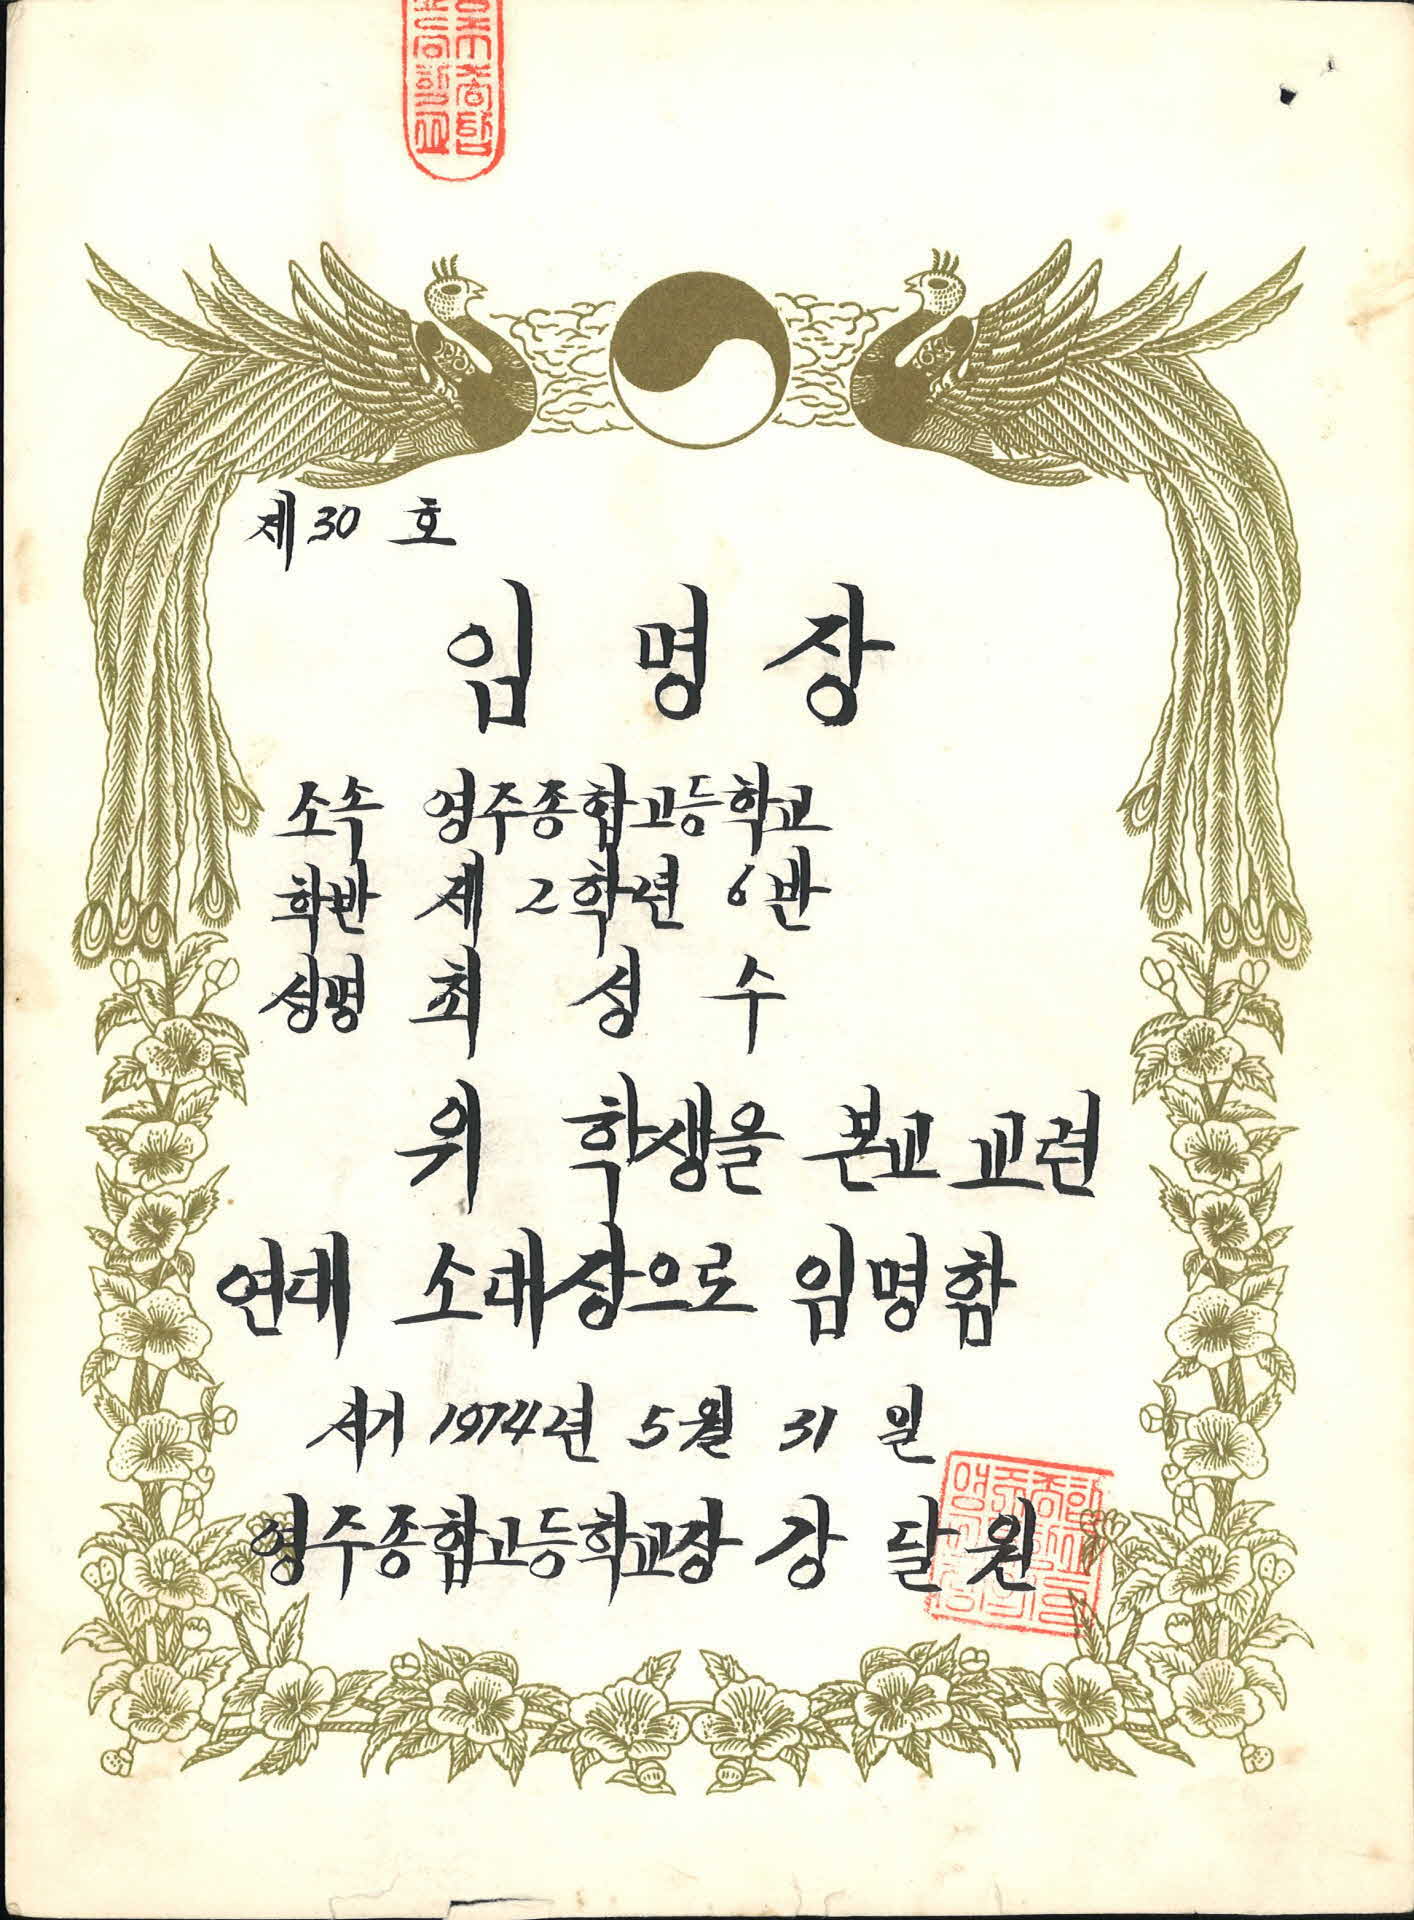 제30 호
임 명 장
소속 영주종합고등학교
학반 제 2학년 6반
성명 최 성 수
위 학생을 본교 교련
연대 소대장으로 임명함
서기 1974년 5월 31 일
영주종합고등학교장 강 달 원